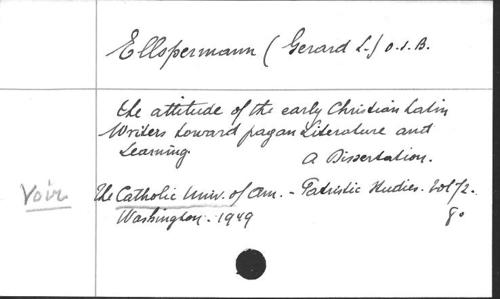 Ellspermann (Gerard L.) O.S.B.
the attitude of the early Christian Latin
Writers toward pagan Literature and
Learning. A Dissertation.
Voir The Catholic Univ. of Am. - Patristic Studies. Vol 72.
Washington - 1949 8o